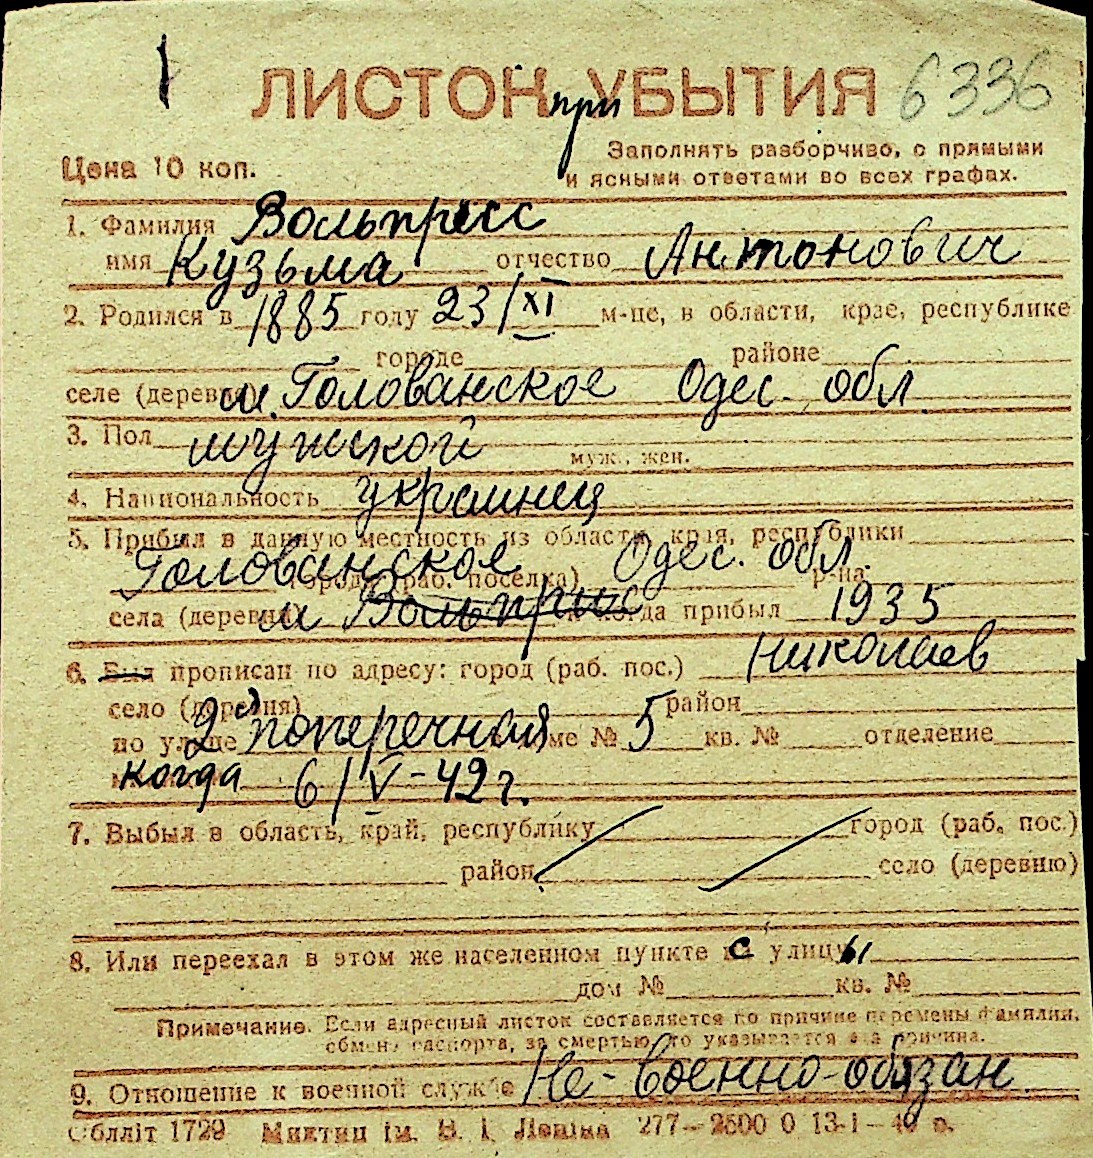 ЛИСТОК при УБЫТИЯ 6336
Цена 10 коп.
Заполнять разборчиво, с прямыми
и ясными ответами во всех графах.
1. Фамилия Вольпресс
имя Кузьма отчество Антонович
2. Родился в 1885 году 23/XI м-це, в области, крае, республике
городе районе
селе (деревне) м. Голованское Одес. обл.
3. Пол мужской муж., жен.
4. Национальность украинец
5. Прибыл в данную местность из области, края, республики
Голованское города (раб. поселка) Одес. обл. р-на
села (деревни) м когда прибыл 1935
6. Был прописан по адресу: город (раб. пос.) Николаев
село (деревня) район
по улице 2я поперечная доме № 5 кв. № отделение
когда 6/V-42 г.
7. Выбыл в область, край, республику город (раб. пос.)
район село (деревню)
8. Или переехал в этом же населенном пункте с улицы
дом № кв. №
Примечание. Если адресный листок составляется по причине перемены фамилии,
обмена паспорта, за смертью, то указывается эта причина.
9. Отношение к военной службе Не-военно-обязан
Облліт 1729 ім. В. І. Леніна 277—2500 0 13-I-